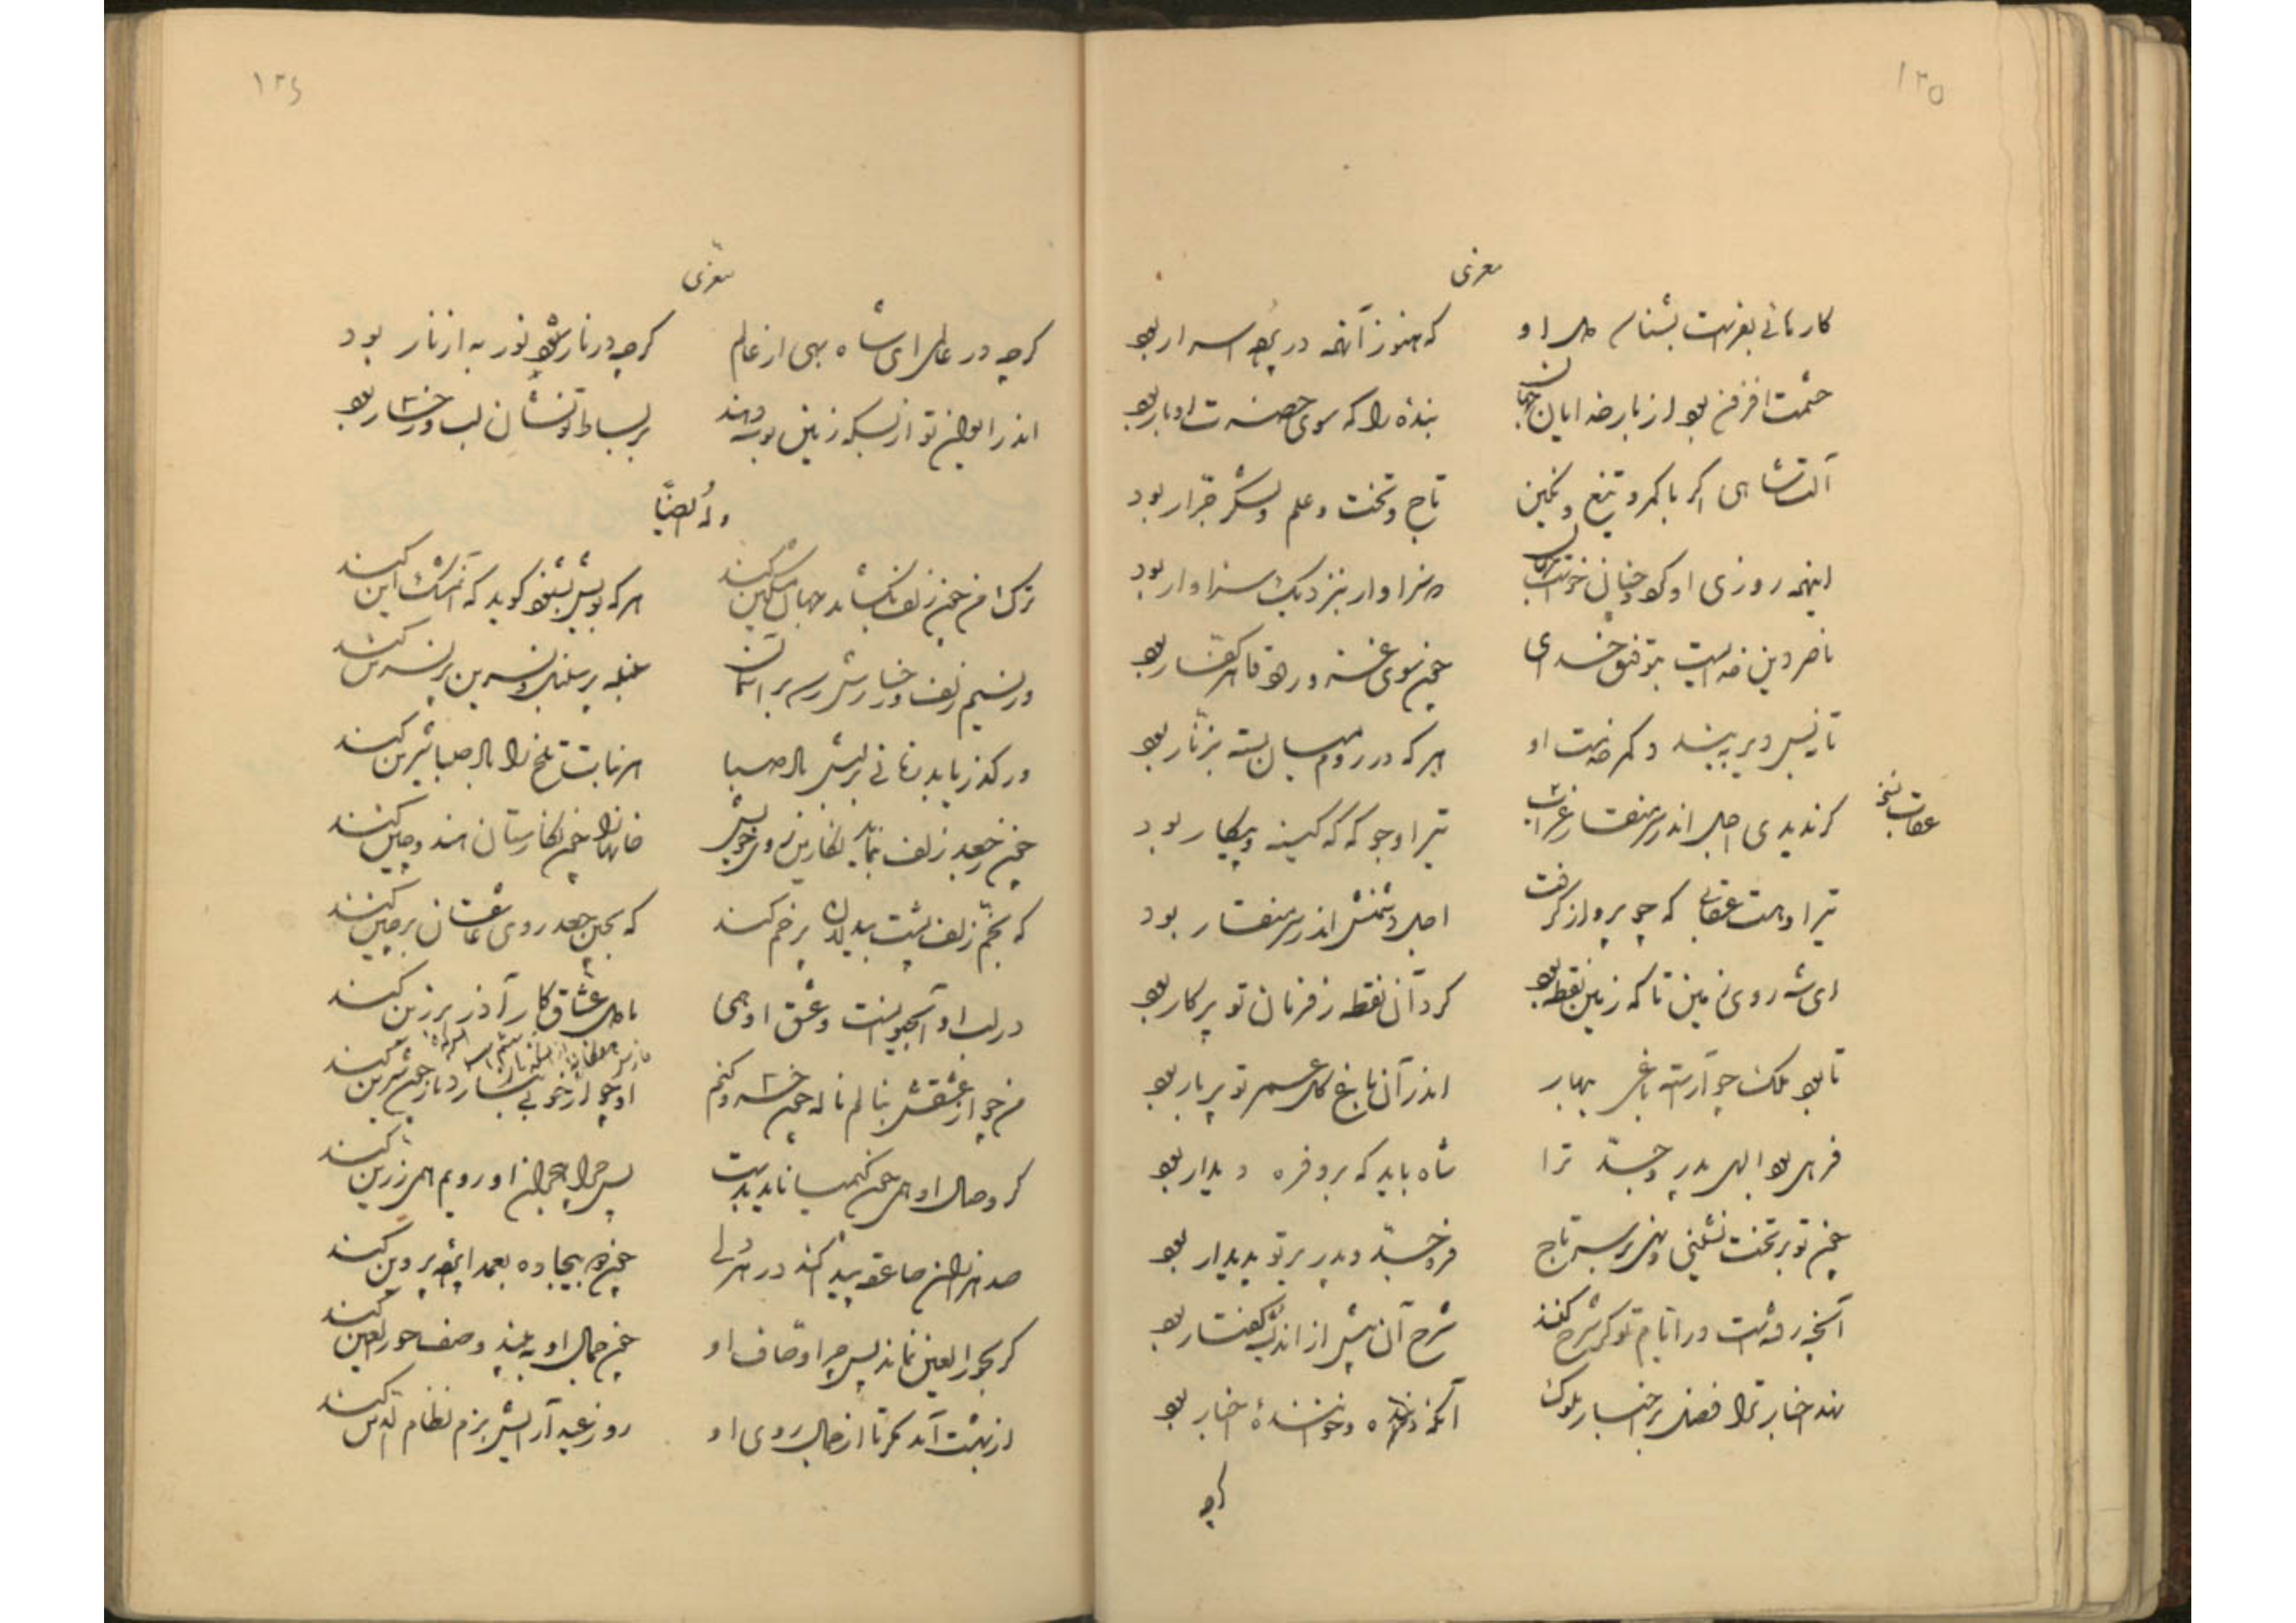 ۱۲۵
معزی
کارهائی بغریت بشناس دل او
که هنوز آنهمه در پرده اسرار بود
حشمت افزون بود از بار خدایان جهان
بنده را که سوی حضرت او بار بود
آلت شاهی اگر با کمر و تیغ و نگین
تاج و تخت و علم و لشکر جرار بود
اینهمه روزی او کرد چنانچون خواست
سزاوار بنزدیک سزاوار بود
ناصر دین خدایست بتوفیق خدای
چون سوی غزو رود قاهر کفار بود
تا نه بس دیر ببندد کمر خدمت او
هر که در روم میان بسته بزنار بود
گر ندیدی اجل اندر سر منقار غراب
تیر او جو که گه کینه و پیکار بود
عقاب نسخه
تیر او هست عقابی که چو پرواز گرفت
اجل دشمنش اندر سر منقار بود
ای شه روی زمین تا که زمین نقطه بود
گرد آن نقطه ز فرمان تو پرگار بود
تا بود ملک چو آراسته باغی ببهار
اندر آن باغ گل عمر تو پربار بود
فرهی بود الهی پدر و جد ترا
شاه باید که بر و فره دیدار بود
چون تو بر تخت نشینی و نهی بر سر تاج
فر جد و پدر بر تو پدیدار بود
آنچه رفتست در ایام تو گر شرح کنند
شرح آن بیش از اندیشه و گفتار بود
نهد اخبار ترا فضل بر اخبار ملوک
آنکه داننده و خواننده اخبار بود
گرچه
۱۲۶
معزی
گرچه در عالمی ای شاه بهی از عالم
گرچه در نار بود نور به از نار بود
اندر ایوان تو از بسکه زمین بوسه دهند
بر بساط تو نشان لب و رخسار بود
وله ایضا
ترک من چون زلف بگشاید جهان مشکین کند
هر که بویش بشنود گوید که آن مشک این کند
ور نسیم زلف و رخسارش رسد بر آسمان
حمله بر سنبل و نسرین پر نسرین کند
ور گذر یابد زمانی بر لبش باد صبا
هر نبات تلخ را باد صبا شیرین کند
چون بجعد زلف بنماید نگارین روی خویش
خانها را چون نگارستان هند و چین کند
که بخم زلف پشت بیدلان پر خم کند
که بچین جعد روی عاشقان پر چین کند
در لب او آب حیوانست و عشق او همی
با دل عشاق کار آذر برزین کند
من چو از عشقش بنالم ناله چون خسرو کنم
او چو از خوبی بنازد ناز چون شیرین کند
گر وصال او همی چون کیمیا ناپدیدست
پس چرا هجران او رویم همی زرین کند
صد هزاران صاعقه پیدا کند در هر دلی
چون ببیجاده بعمدا پرده پروین کند
گر بحور العین نماند پس چرا وصاف او
چون جمال او به بیند وصف حور العین کند
از بهشت آمد مگر تا از جمال روی او
روز عید آرایش بزم نظام الدین کند